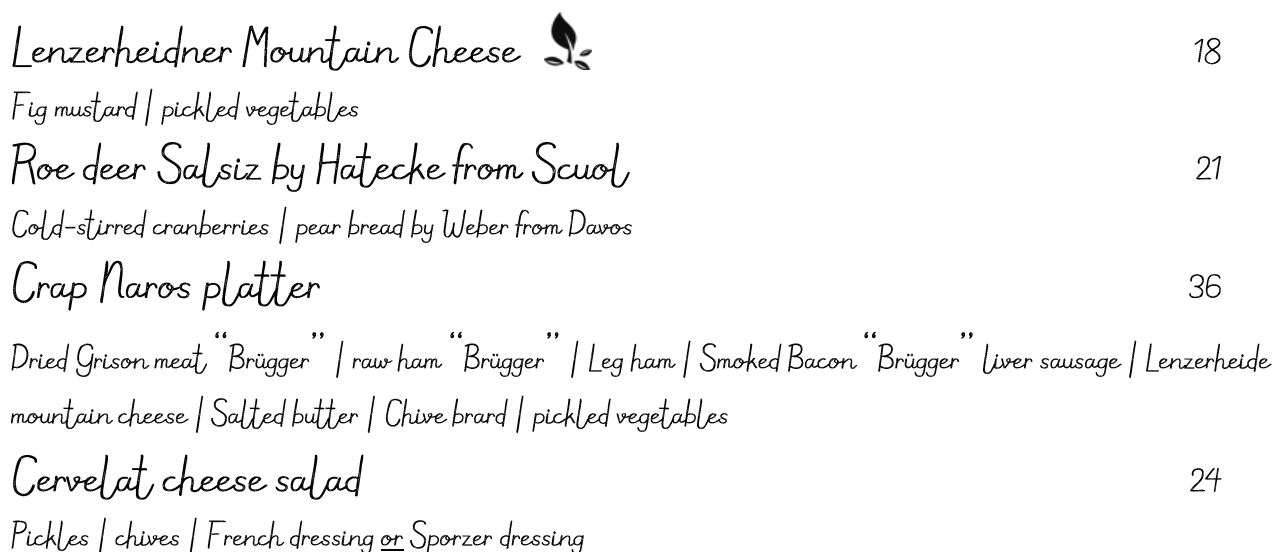 Lenzerheidner Mountain Cheese 18
Fig mustard | pickled vegetables
Roe deer Salsiz by Hatecke from Scuol 21
Cold-stirred cranberries | pear bread by Weber from Davos
Crap Naros platter 36
Dried Grison meat “Brügger” | raw ham “Brügger” | Leg ham | Smoked Bacon “Brügger” liver sausage | Lenzerheide
mountain cheese | Salted butter | Chive brard | pickled vegetables
Cervelat cheese salad 24
Pickles | chives | French dressing or Sporzer dressing